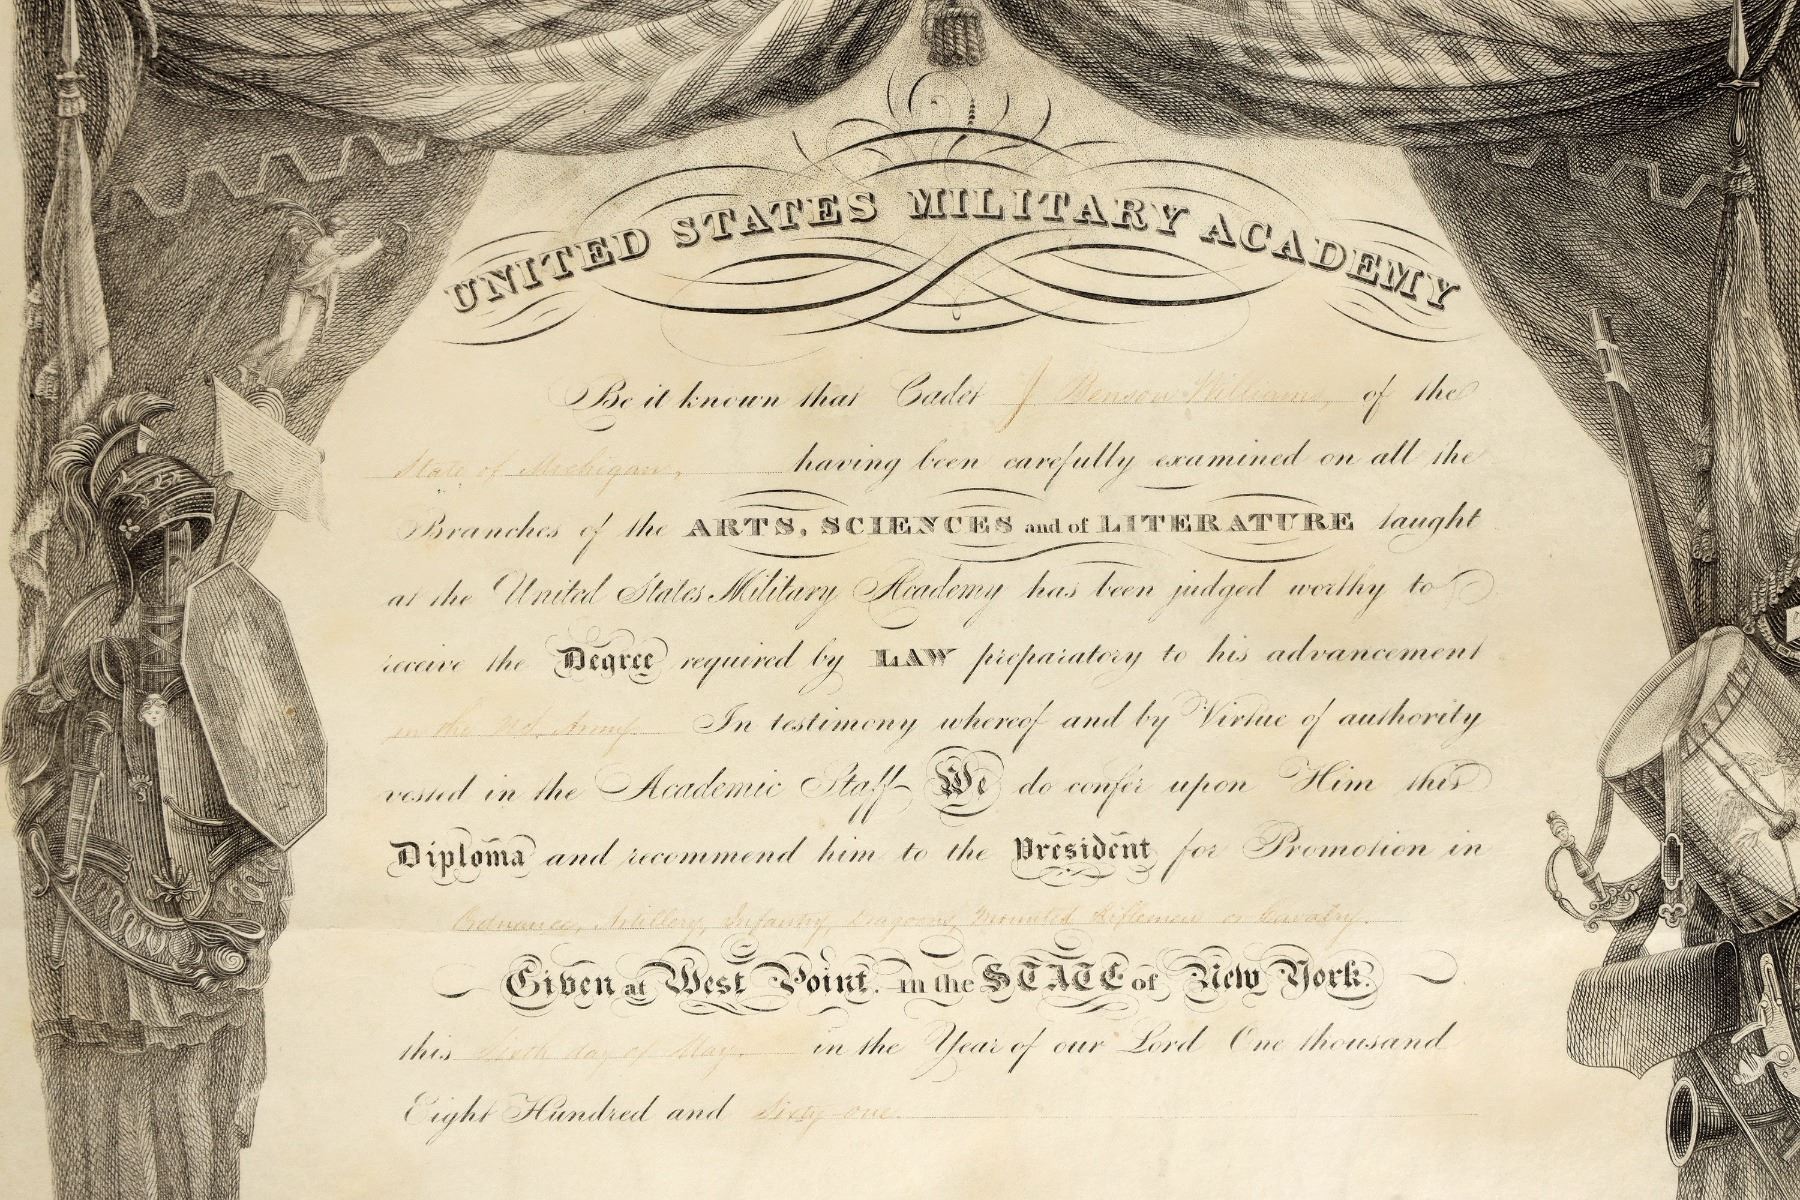 UNITED STATES MILITARY ACADEMY
Be it known that Cadet J Benson Williams, of the
State of Michigan, having been carefully examined on all the
Branches of the ARTS, SCIENCES and of LITERATURE taught
at the United States Military Academy has been judged worthy to
receive the Degree required by LAW preparatory to his advancement
in the U.S. Army. In testimony whereof and by Virtue of authority
vested in the Academic Staff We do confer upon Him this
Diploma and recommend him to the President for Promotion in
Ordnance, Artillery, Infantry, Dragoons, Mounted Riflemen or Cavalry.
Given at West Point. in the STATE of New York.
this Sixth day of May. in the Year of our Lord One thousand
Eight Hundred and Sixty one.